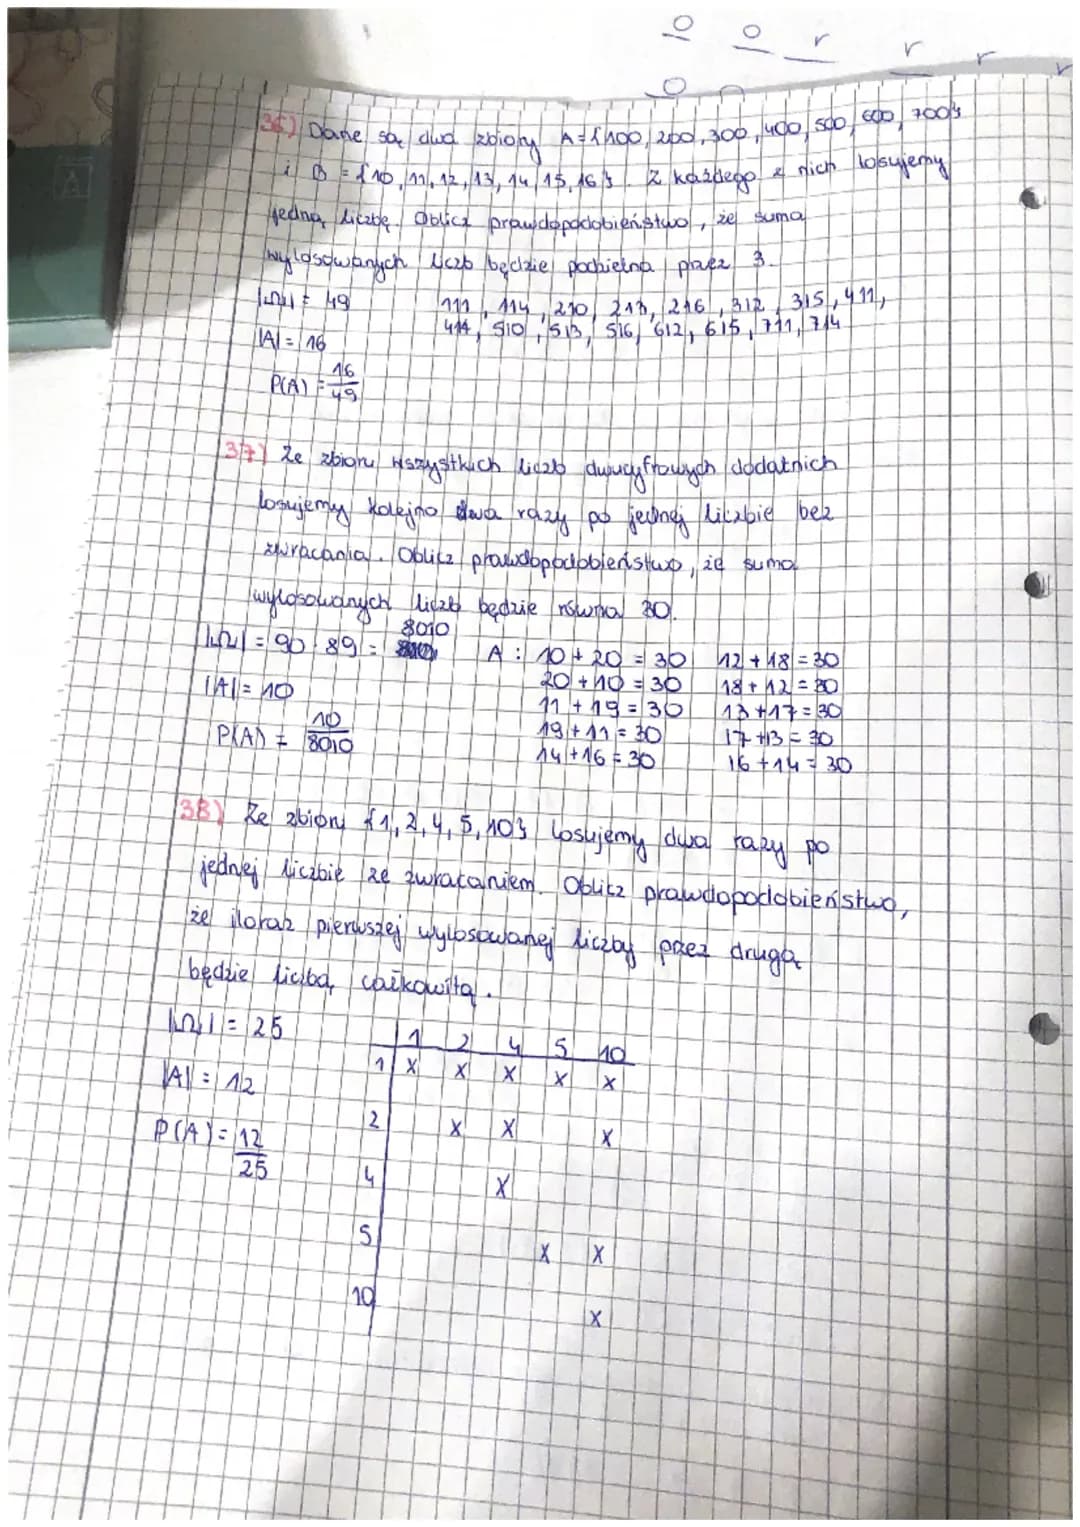 36) Dane są dwa zbiory A={100, 200, 300, 400, 500, 600, 700}
i B = {10, 11, 12, 13, 14, 15, 16}. Z każdego z nich losujemy
jedną liczbę. Oblicz prawdopodobieństwo, że suma
wylosowanych liczb będzie podzielna przez 3.
|Ω| = 49
111, 114, 210, 213, 216, 312, 315, 411,
414, 510, 513, 516, 612, 615, 711, 714
|A| = 16
P(A) = 16/49
37) Ze zbioru wszystkich liczb dwucyfrowych dodatnich
losujemy kolejno dwa razy po jednej liczbie bez
zwracania. Oblicz prawdopodobieństwo, że suma
wylosowanych liczb będzie równa 30.
|Ω| = 90 · 89 = 8010
A : 10 + 20 = 30 12 + 18 = 30
20 + 10 = 30 18 + 12 = 30
|A| = 10
11 + 19 = 30 13 + 17 = 30
19 + 11 = 30 17 + 13 = 30
P(A) = 10/8010
14 + 16 = 30 16 + 14 = 30
38) Ze zbioru {1, 2, 4, 5, 10} losujemy dwa razy po
jednej liczbie ze zwracaniem. Oblicz prawdopodobieństwo,
że iloraz pierwszej wylosowanej liczby przez drugą
będzie liczbą całkowitą.
|Ω| = 25
1 2 4 5 10
1 x x x x x
|A| = 12
2 x x x
P(A) = 12/25
4 x
5 x x
10 x